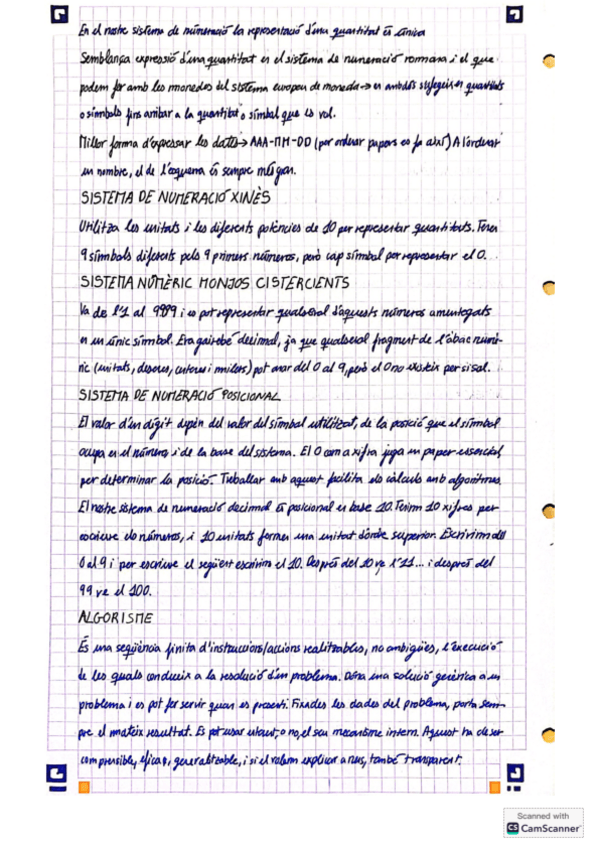 En el nostre sistema de numeració la representació d'una quantitat és única
Semblança expressió d'una quantitat en el sistema de numeració romana i el que
podem fer amb les monedes del sistema europeu de moneda → en ambdós s'afegeixen quantitats
o símbols fins arribar a la quantitat o símbol que es vol.
Millor forma d'expressar les dates → AAA-MM-DD (per ordenar papers es fa així) A l'ordenar
un nombre, el de l'esquerra és sempre més gran.
SISTEMA DE NUMERACIÓ XINÈS
Utilitza les unitats i les diferents potències de 10 per representar quantitats. Tenen
9 símbols diferents pels 9 primers números, però cap símbol per representar el 0.
SISTEMA NUMÈRIC MONJOS CISTERCIENTS
Va de l'1 al 9999 i es pot representar qualsevol d'aquests números amuntegats
en un únic símbol. Era gairebé decimal, ja que qualsevol fragment de l'àbac numè-
ric (unitats, desenes, centenes i milers) pot anar del 0 al 9, però el 0 no existeix per si sol.
SISTEMA DE NUMERACIÓ POSICIONAL
El valor d'un dígit depèn del valor del símbol utilitzat, de la posició que el símbol
ocupa en el número i de la base del sistema. El 0 com a xifra juga un paper essencial
per determinar la posició. Treballar amb aquest facilita els càlculs amb algoritmes.
El nostre sistema de numeració decimal és posicional en base 10. Tenim 10 xifres per
escriure els números, i 10 unitats formen una unitat d'ordre superior. Escrivim del
0 al 9 i per escriure el següent escrivim el 10. Després del 10 ve l'11... i després del
99 ve el 100.
ALGORISME
És una seqüència finita d'instruccions/accions realitzables, no ambigües, l'execució
de les quals condueix a la resolució d'un problema. Dóna una solució genèrica a un
problema i es pot fer servir quan es presenti. Fixades les dades del problema, porta sem-
pre el mateix resultat. Es pot usar sabent, o no, el seu mecanisme intern. Aquest ha de ser
comprensible, eficaç, generalitzable, i si el volem explicar a nens, també transparent.
Scanned with
CS CamScanner